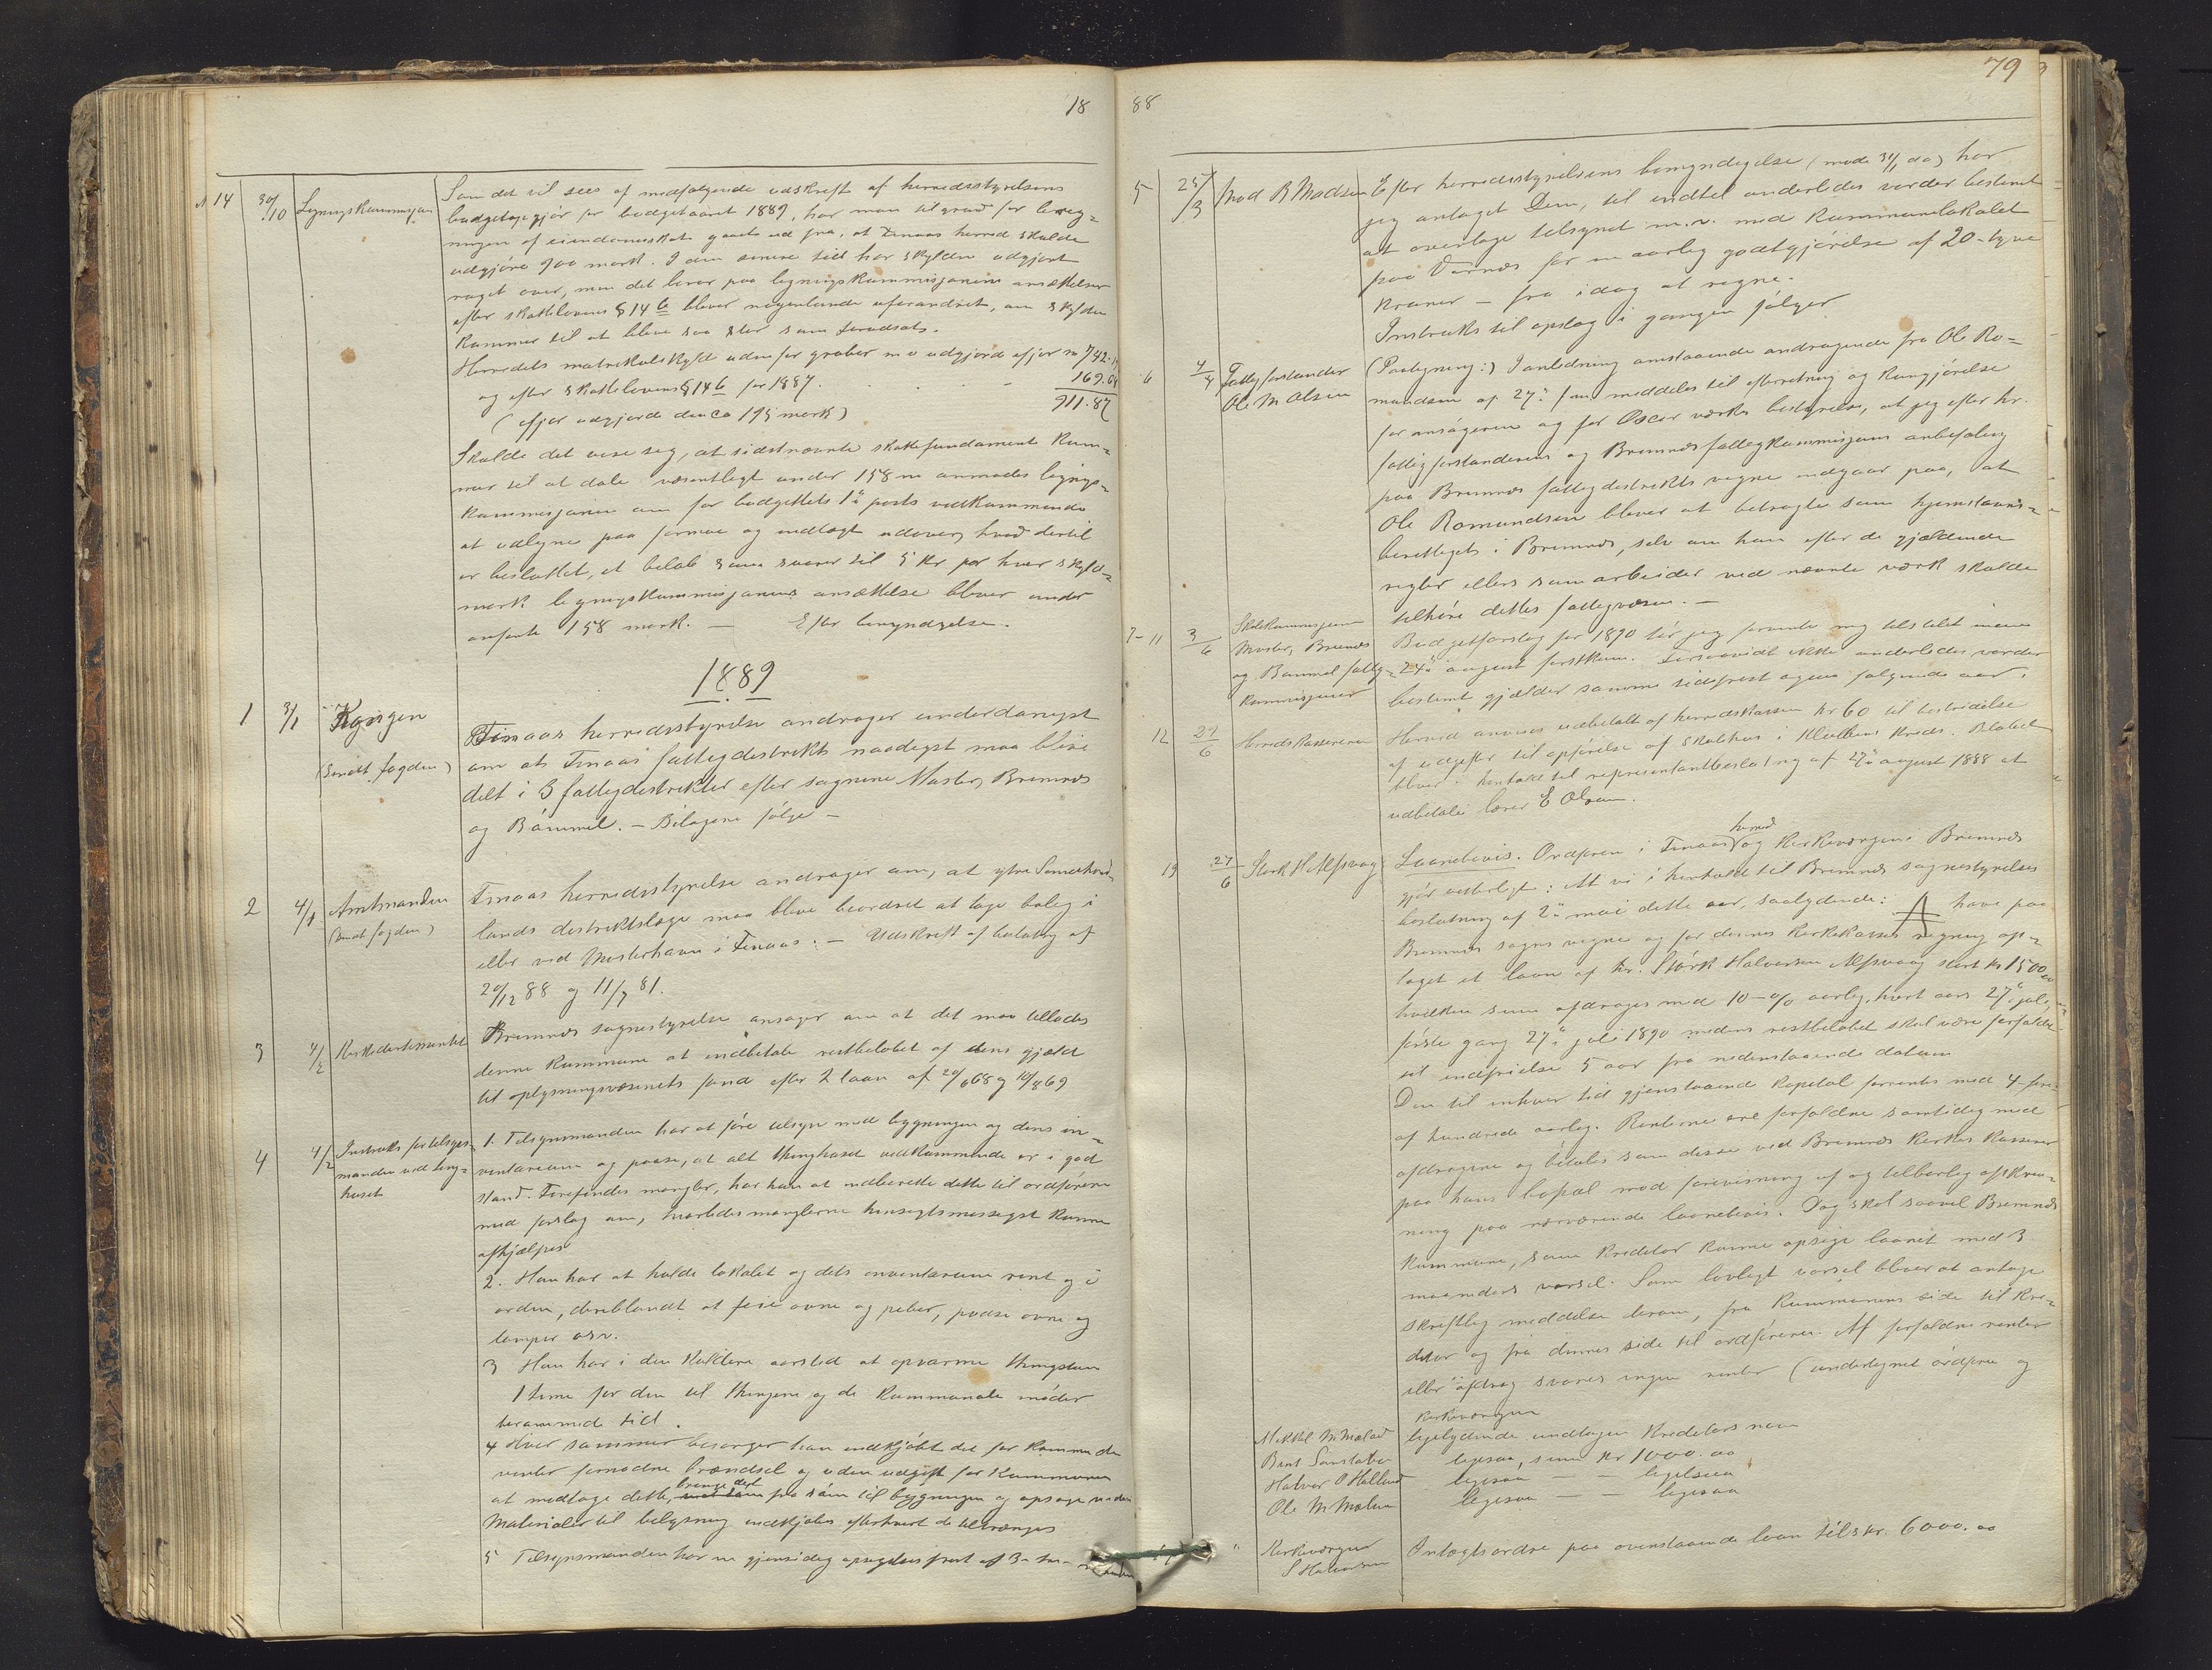 18
№ 14
30/10
Ligningskommisjonen
Som det vil sees af medfølgende udskrift af herredsstyrelsens
budgetopgjør for budgetaaret 1889, har man til grund for bereg-
ningen af eiendomsskat gaaet ud fra, at Finaas herred skulde
udgjøre 900 mark. I den senere tid har skylden udgjort
noget over, men det beror paa ligningskommisjonens ansættelser
efter skattelovens § 14 b bliver nogenlunde uforandret, om skylden
kommer til at blive saa stor som forudsat.
Herredets matrikulskyld udenfor gruber m v udgjorde ifjor m 742.
og efter skattelovens § 14 b for 1887. 169.
911.87
(ifjor udgjorde den ca 195 mark)
Skulde det vise sig, at sidstnævnte skattefundament kom-
mer til at dale væsentligt under 158 m anmodes lignings-
kommisjonen om for budgettets 1ste posts vedkommende
at udligne paa formue og indtægt udover hvad dertil
er besluttet, et beløb som svarer til 5 kr for hver skyld-
mark ligningskommisjonens ansættelse bliver under
anførte 158 mark. — Efter bemyndigelse.
1889
1
3/1
Kongen
(Sendt fogden)
Finaas herredsstyrelse andrager underdanigst
om at Finaas fattigdistrikt naadigst maa blive
delt i 3 fattigdistrikter efter sognene Moster, Bremnes
og Bømmel. — Bilagene følge —
2
4/1
Amtmanden
(Sendt fogden)
Finaas herredsstyrelse andrager om, at ytre Søndhord-
lands distriktslæge maa blive beordret at tage bolig i
eller ved Mosterhavn i Finaas. — Udskrift af beslutning af
20/12 88 og 11/7 81.
3
4/2
Kirkedepartementet
Bremnes sognestyrelse ansøger om at det maa tillades
denne kommune at indbetale restbeløbet af dens gjæld
til oplysningsvæsenets fond efter 2 laan af 20/6 68 og 10/8 69
4
4/2
Instruks for tilsyns-
manden ved ting-
huset
1. Tilsynsmanden har at føre tilsyn med bygningen og dens in-
ventarium og paase, at alt thinghuset vedkommende er i god
stand. Forefindes mangler, har han at indberette dette til ordføreren
med forslag om, hvorledes manglerne hensigtsmæssigst kunne
afhjælpes
2. Han har at holde lokalet og dets inventarium rent og i
orden, deriblandt at feie ovne og piber, pudse ovne og
lamper osv.
3 Han har i den koldere aarstid at opvarme thingstuen
1 time før den til thingene og de kommunale møder
berammede tid.
4 Hver sommer besørger han indkjøbt det for kommende
vinter fornødne brændsel og uden udgift for kommunen
at modtage dette, bringe det fra søen til bygningen og opsage veden
Materialer til belysning indkjøbes efterhvert de tiltrænges
5 Tilsynsmanden har en gjensidig opsigelses frist af 3 - tre - maaneder
88
79
5
25/3
Mad B Madsen
Efter herredsstyrelsens bemyndigelse (møde 30/11 do) har
jeg antaget Dem, til indtil anderledes vorder bestemt
at overtage tilsynet m. v. med kommunelokalet
paa Vernes for en aarlig godtgjørelse af 20 - tyve
kroner — fra idag at regne.
Instruks til opslag i gangen følger
6
4/4
Fattigforstander
Ole M Olsen
(Paategning:) I anledning omstaaende andragende fra Ole Ro-
mundsen af 27de f m meddeles til efterretning og kungjørelse
for ansøgeren og for Oscar værks bestyrelse, at jeg efter hr.
fattigforstanderens og Bremnes fattigkommisjons anbefaling
paa Bremnes fattigdistrikts vegne indgaar paa, at
Ole Romundsen bliver at betragte som hjemstavns-
berettiget i Bremnes, selv om han efter de gjældende
regler ellers som arbeider ved nævnte værk skulde
tilhøre dettes fattigvæsen. —
7-11
3/6
Skolekommisjonen
Moster, Bremnes
og Bømmel fattig-
kommisjoner
Budgetforslag for 1890 tør jeg forvente mig tilstillet inden
24de august førstkom. Forsaavidt ikke anderledes vorder
bestemt gjælder samme tidsfrist ogsaa følgende aar.
12
27/6
Herredskassereren
Herved anvises udbetalt af herredskassen kr 60 til bestridelse
af udgifter til opførelse af skolehus i kreds. Beløbet
bliver i henhold til representantbeslutning af 27de august 1888 at
udbetale lærer E Olsen.
13
27/6
Størk H Alfsvaag
Laanebevis. Ordføreren i Finaas herred og kirkeværgen i Bremnes
gjør vitterligt: At vi i henhold til Bremnes sognestyrelses
beslutning af 2den mai dette aar, saalydende: have paa
Bremnes sogns vegne og for dennes kirkekasses regning op-
taget et laan af hr. Størk Halvorsen Alfsvaag stort kr 1500.00
hvilken sum afdrages med 10 - % aarlig, hvert aars 27de juli,
første gang 27de juli 1890 medens restbeløbet skal være forfaldent
til indfrielse 5 aar fra nedenstaaende datum
Den til enhver tid gjenstaaende kapital forrentes med 4 - fire
af hundrede aarlig. Renterne ere forfaldne samtidig med
afdragene og betales som disse ved Bremnes kirkes kasserer
paa hans bopæl mod forevisning af og tilbørlig afskriv-
ning paa nærværende laanebevis. Dog skal saavel Bremnes
kommune, som kreditor kunne opsige laanet med 3
maaneders varsel. Som lovligt varsel bliver at antage
skriftlig meddelelse herom, fra kommunens side til kre-
ditor og fra dennes side til ordføreren. Af forfaldne renter
eller afdrag svares ingen renter (undertegnet ordfører og
kirkeværgen
Mikkel M Mælad
ligelydende undtagen kreditors navn
Bent
ligesaa, sum kr 1000.00
Halvor O Helland
ligesaa — — ligesaa
Ole M Mælen
ligesaa — — ligesaa
"
Kirkeværgen
S Halvorsen
Indtægtsordre paa ovenstaaende laan tils. kr. 6000.00